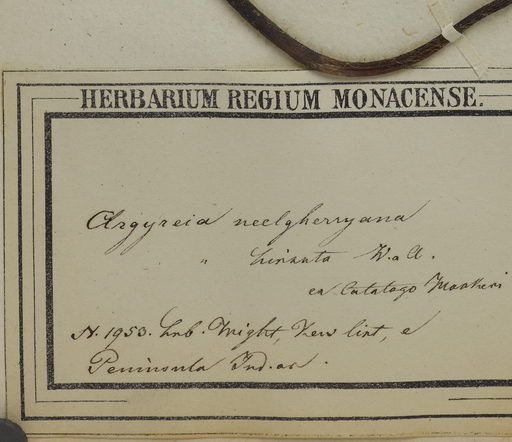 HERBARIUM REGIUM MONACENSE.
Argyreia neelgherryana
" hirsuta W. a A.
ex Catalogo
N. 1953. hrb. Wight, New list, e
Peninsula Ind. or.